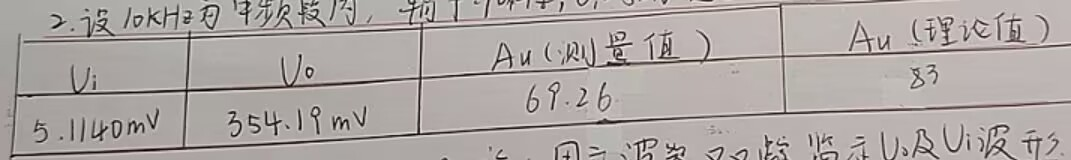 2.设10kHz为中频段内,
Ui Uo Au(测量值) Au(理论值)
5.1140mV 354.19mV 69.26 83
用示波器 监示Uo及Ui波形